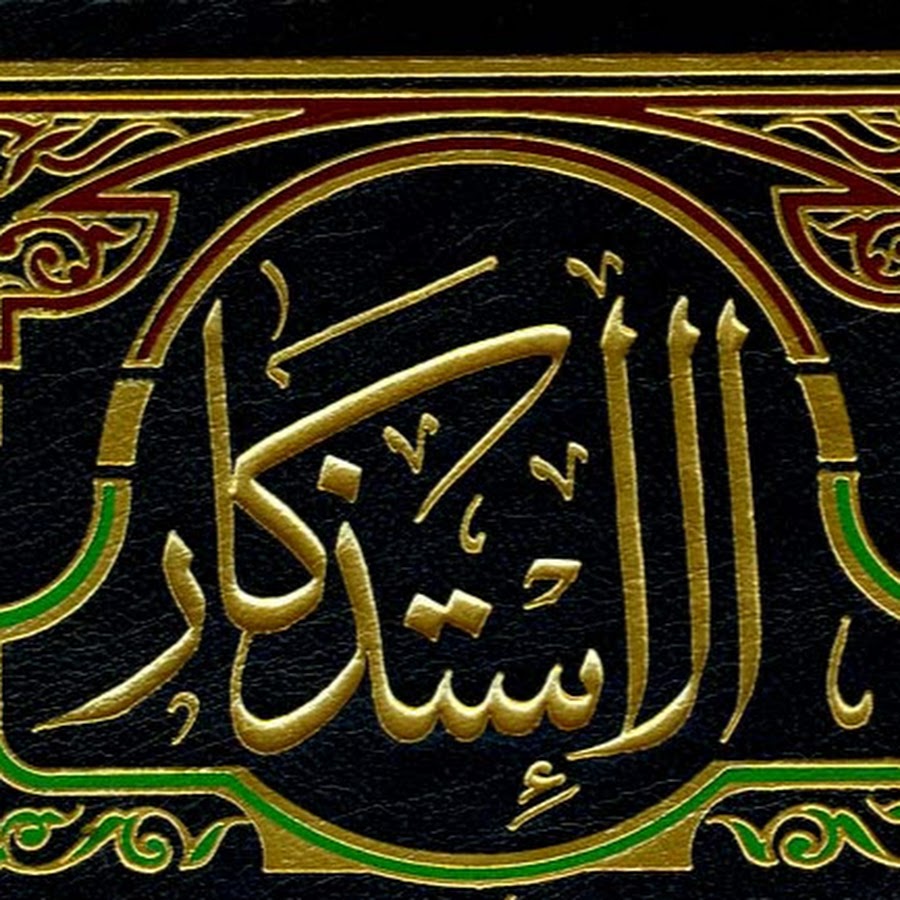 الإستذكار